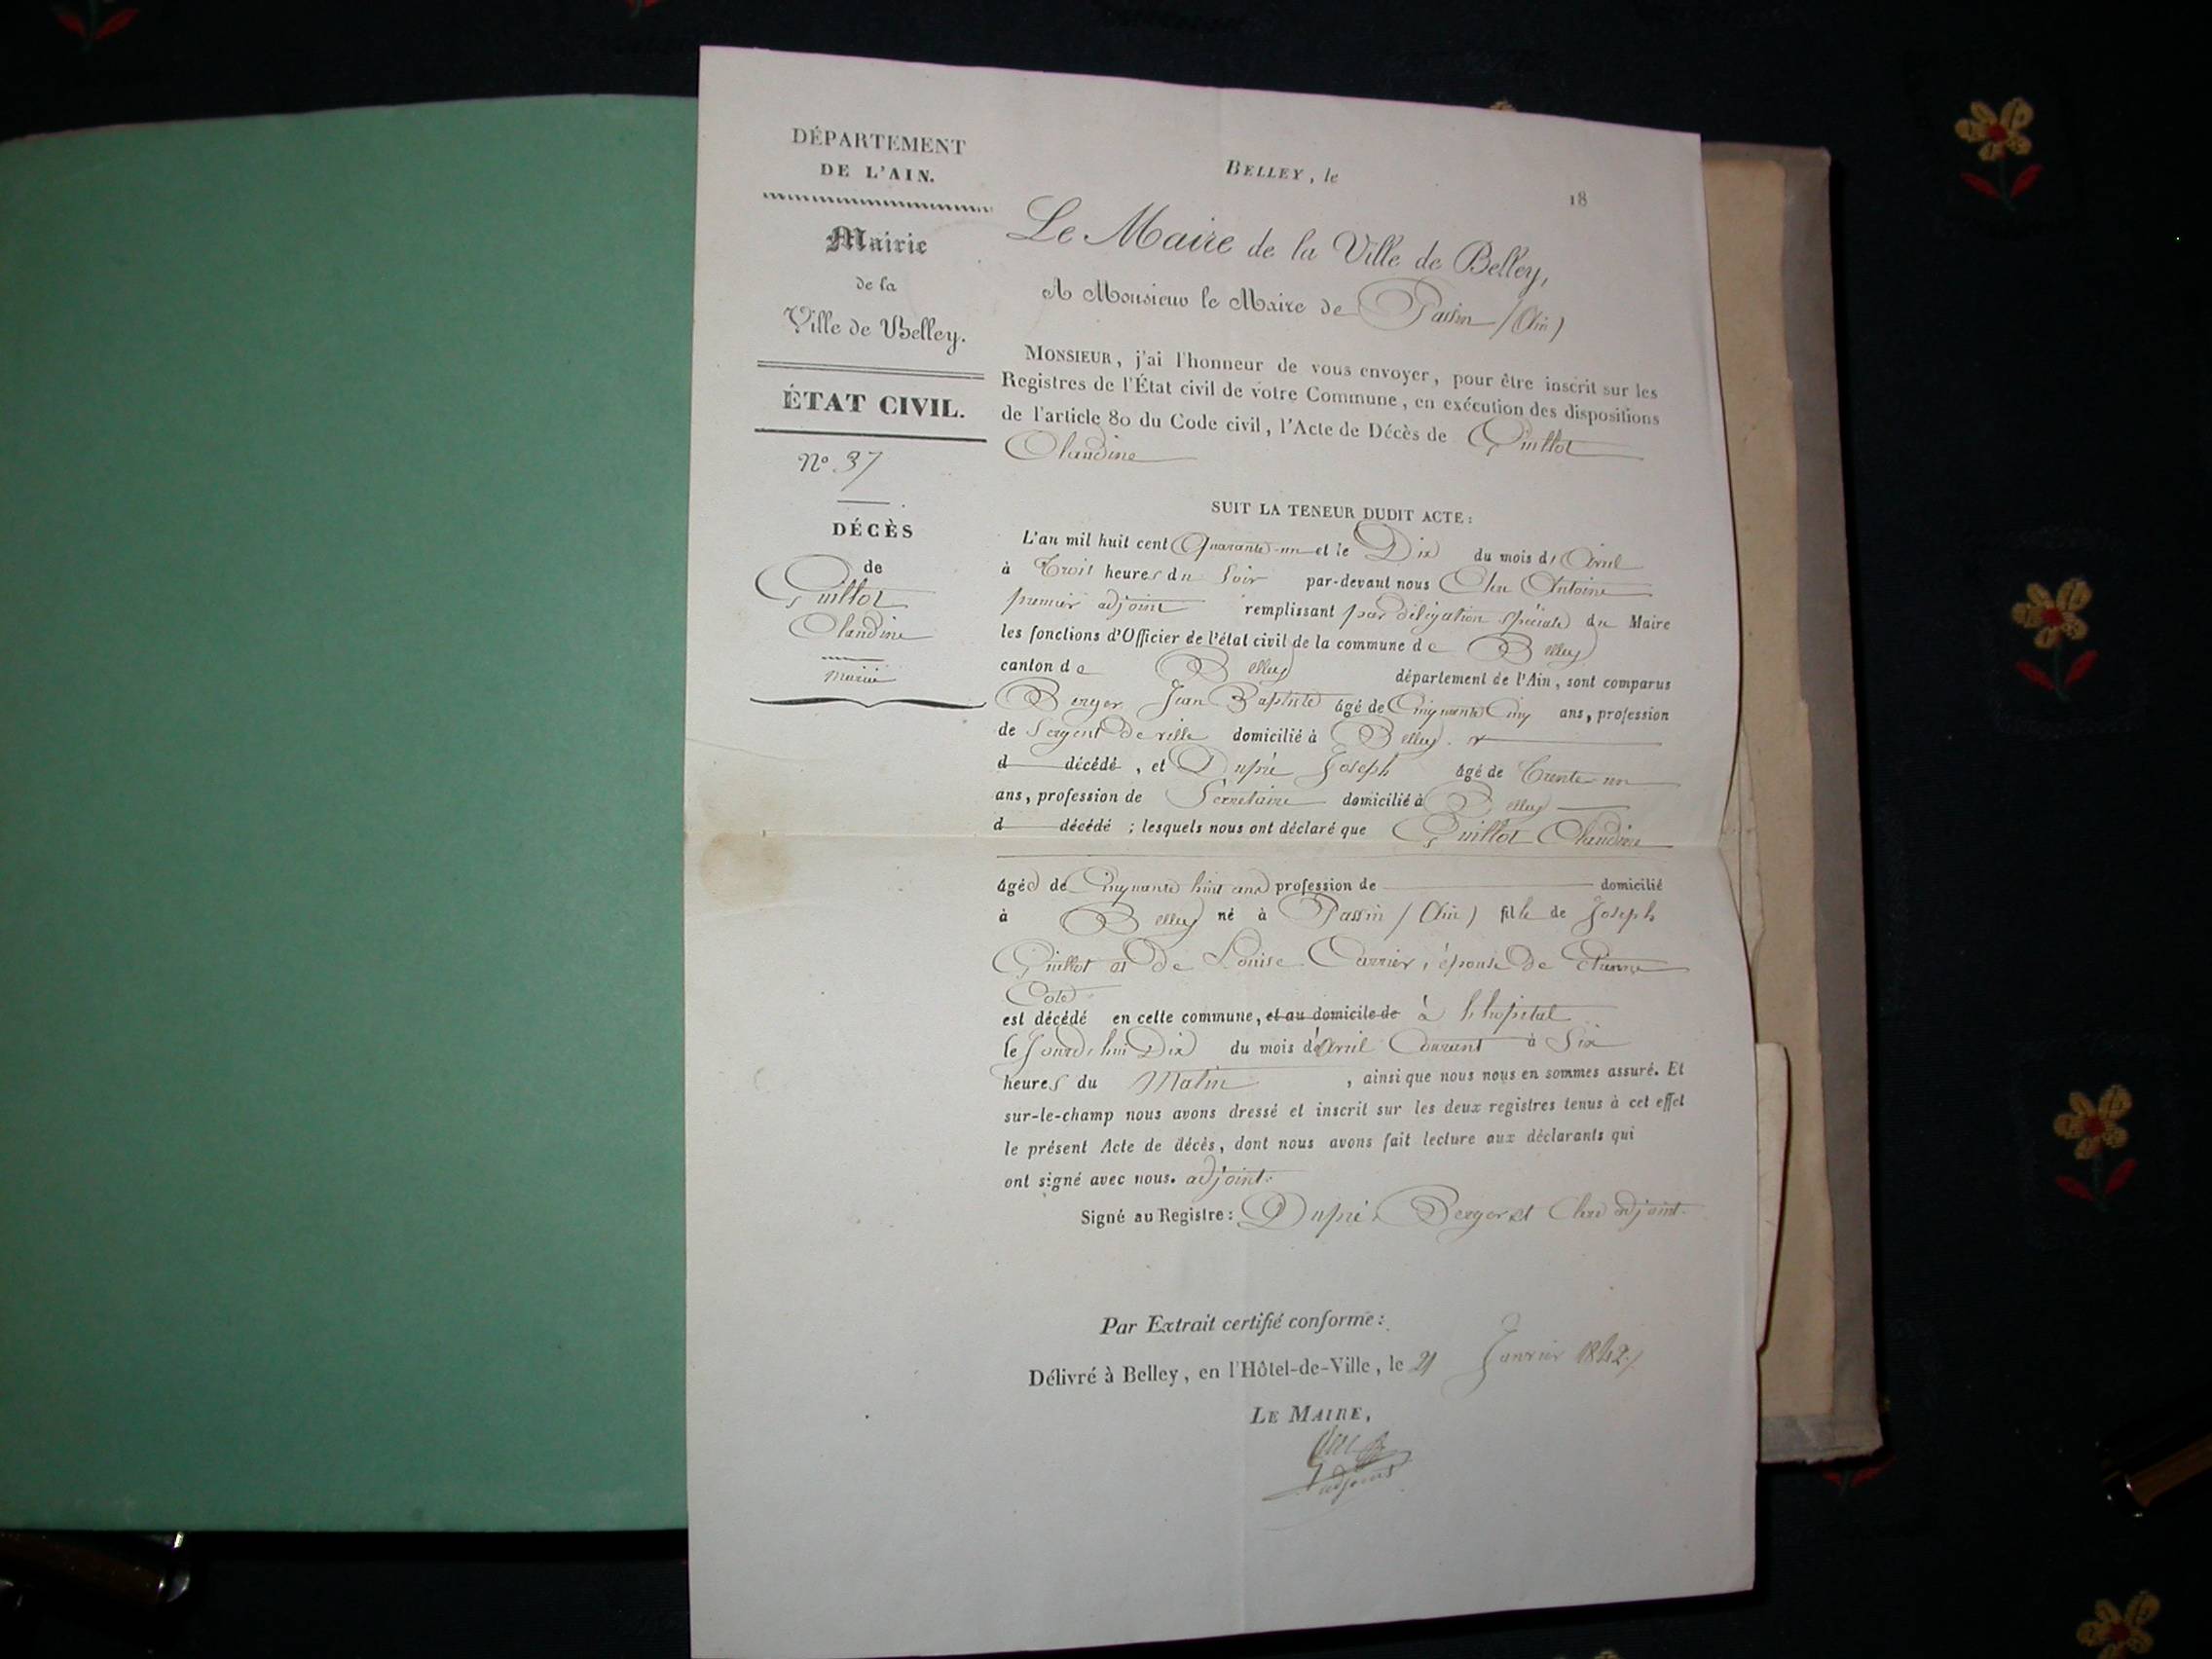 DÉPARTEMENT
DE L'AIN.
Mairie
de la
Ville de Belley.
ÉTAT CIVIL.
N° 37
DÉCÈS
de
Guillot
Claudine
BELLEY, le 18
Le Maire de la Ville de Belley,
A Monsieur le Maire de Passin / Ain )
MONSIEUR, j'ai l'honneur de vous envoyer, pour être inscrit sur les
Registres de l'État civil de votre Commune, en exécution des dispositions
de l'article 80 du Code civil, l'Acte de Décès de Guillot
Claudine
SUIT LA TENEUR DUDIT ACTE :
L'an mil huit cent Quarante-un et le Dix du mois d'Avril
à Trois heures du Soir par-devant nous Antoine
premier adjoint remplissant par délégation spéciale du Maire
les fonctions d'Officier de l'état civil de la commune de Belley
canton de Belley département de l'Ain, sont comparus
Berger Jean Baptiste âgé de Cinquante Cinq ans, profession
de Sergent de ville domicilié à Belley.
d décédé , et Dupré Joseph âgé de Trente-un
ans, profession de Secrétaire domicilié à Belley
d décédé ; lesquels nous ont déclaré que Guillot Claudine
âgée de Cinquante huit ans profession de domicilié
à Belley né à Passin / Ain ) fille de Joseph
Guillot et de Louise Carrier, épouse de Etienne
Coté
est décédé en cette commune, et au domicile de à l'hopital
le Jourd'hui Dix du mois d'Avril Courant à Six
heures du Matin , ainsi que nous nous en sommes assuré. Et
sur-le-champ nous avons dressé et inscrit sur les deux registres tenus à cet effet
le présent Acte de décès, dont nous avons fait lecture aux déclarants qui
ont signé avec nous. adjoint.
Signé au Registre : Dupré, Berger et adjoint.
Par Extrait certifié conforme :
Délivré à Belley, en l'Hôtel-de-Ville, le 21 Janvier 1842.
LE MAIRE,
adjoint